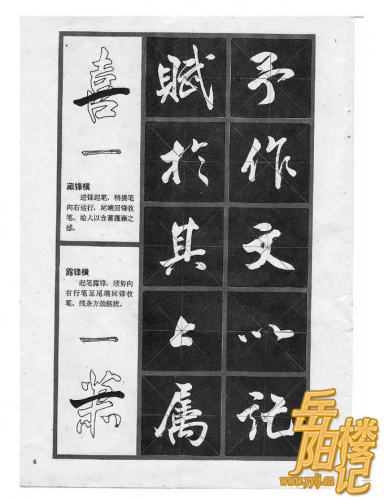 喜
一
藏锋横
逆锋起笔，稍提笔
向右运行，尾端回锋收
笔，给人以含蓄蕴藉之
感。
露锋横
起笔露锋，顺势向
右行笔至尾端回锋收
笔，线条方劲挺拔。
一
賦於其上属
予作文以记
6
岳阳楼记
www.yylj.cn